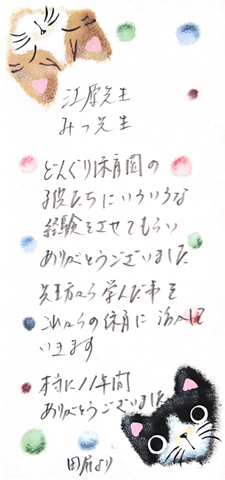 江原先生
みつ先生
どんぐり保育園の
子供たちにいろいろな
経験をさせてもらい
ありがとうございました
先生方から学んだ事を
これからの保育に活かして
いきます
本当に11年間
ありがとうございました
より